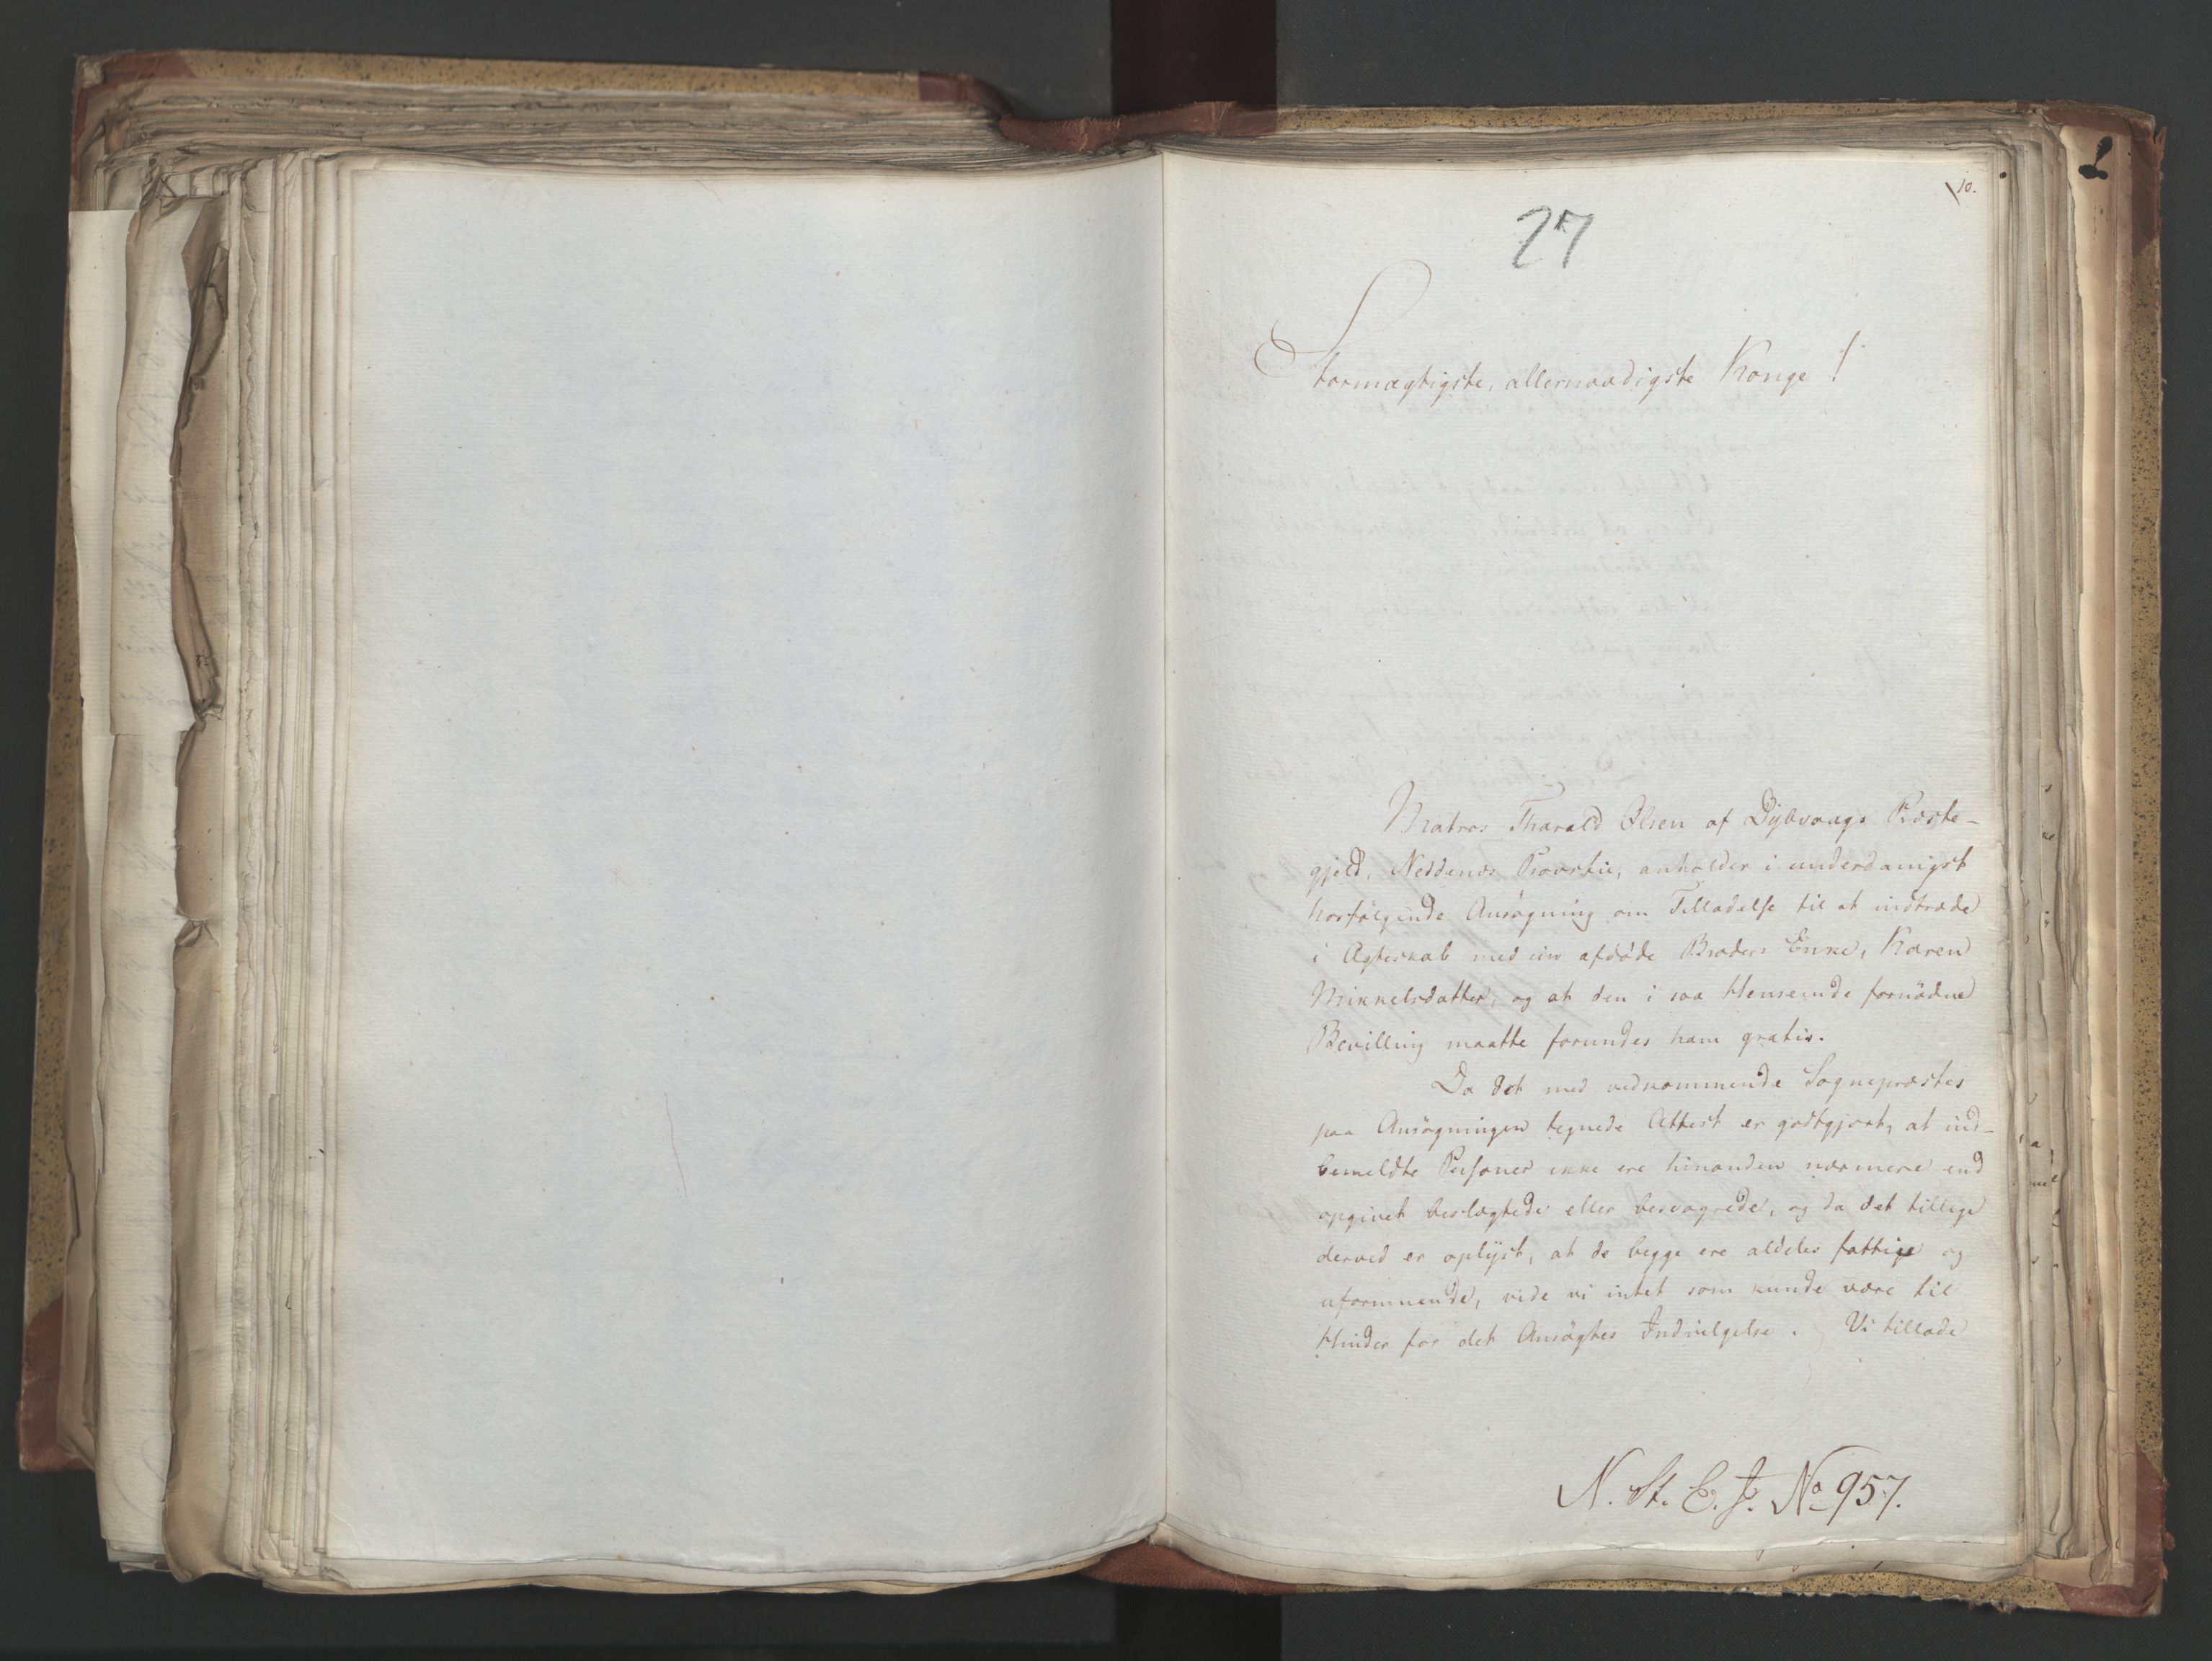 10.
27
Stormægtigste, allernaadigste Konge!
Matros Tharald Olsen af Dybvaags Præste-
gjeld, Neddenæs Provstie, anholder i underdanigst
hosfölgende Ansögning om Tilladelse til at indtræde
i Ægteskab med sin afdöde Broders Enke, Karen
Mikkelsdatter, og at den i saa Henseende fornödne
Bevilling maatte forundes ham gratis.
Da det med vedkommende Sognepræstes
paa Ansögningen tegnede Attest er godtgjort, at ind-
bemeldte Personer ikke ere hinanden nærmere end
opgivet beslægtede eller besvogrede, og da det tillige
derved er oplyst, at de begge ere aldeles fattige og
uformuende, vide vi intet som kunde være til
Hinder for det Ansögtes Indvilgelse. Vi tillade
N. St. E. J. No 957.